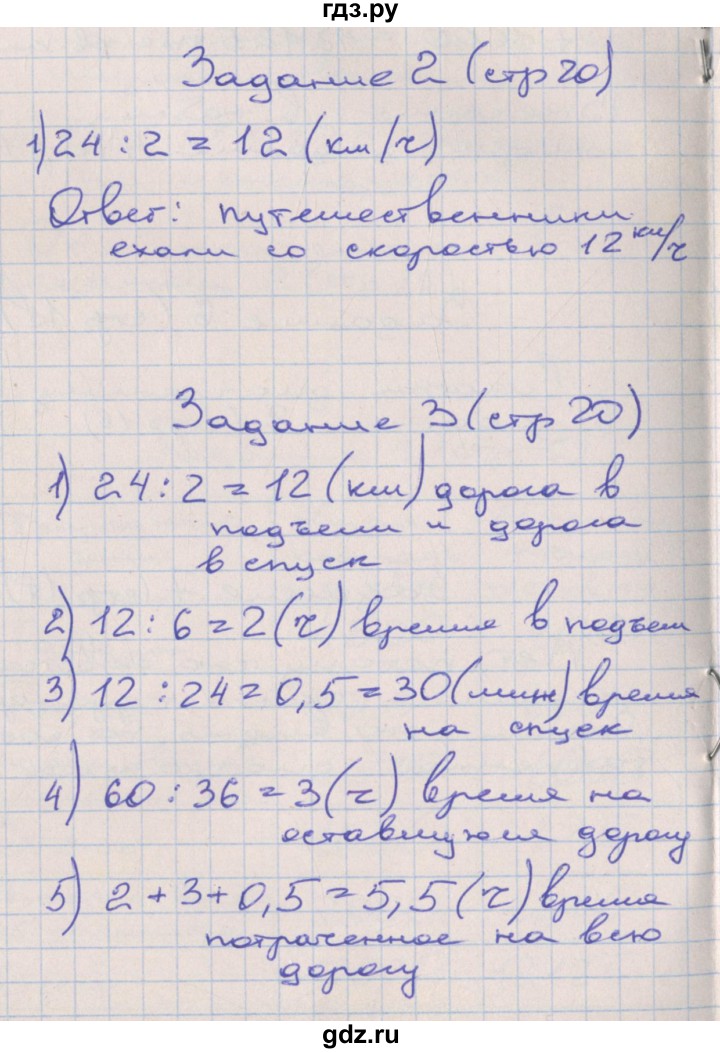 гдз.ру
Задание 2 (стр 20)
1) 24 : 2 = 12 (км/ч)
Ответ: путешественники
ехали со скоростью 12 км/ч
Задание 3 (стр 20)
1) 24 : 2 = 12 (км) дорога в
подъем и дорога
в спуск
2) 12 : 6 = 2 (ч) время в подъем
3) 12 : 24 = 0,5 = 30 (мин) время
на спуск
4) 60 : 36 = 3 (ч) время на
оставшуюся дорогу
5) 2 + 3 + 0,5 = 5,5 (ч) время
потраченное на всю
дорогу
gdz.ru